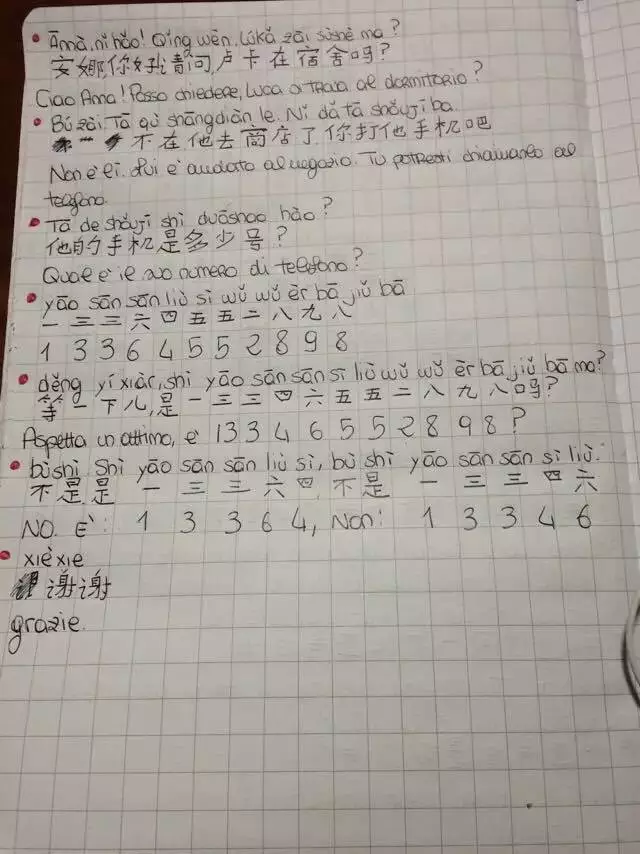 • Ānnà, nǐ hǎo! Qǐng wèn, Lúkǎ zài sùshè ma?
安娜你好请问,卢卡在宿舍吗?
Ciao Anna! Posso chiedere, Luca si trova al dormitorio?
• Bú zài. Tā qù shāngdiàn le. Nǐ dǎ tā shǒujī ba.
不在他去商店了你打他手机吧
Non è lì. Lui è andato al negozio. Tu potresti chiamarlo al
telefono.
• Tā de shǒujī shì duōshao hào?
他的手机是多少号?
Qual è il suo numero di telefono?
• yāo sān sān liù sì wǔ wǔ èr bā jiǔ bā
一 三 三 六 四 五 五 二 八 九 八
1 3 3 6 4 5 5 2 8 9 8
• děng yíxiàr, shì yāo sān sān sì liù wǔ wǔ èr bā jiǔ bā ma?
等一下儿,是一三三四六五五二八九八吗?
Aspetta un attimo, è 13 3 4 6 5 5 2 8 9 8?
• búshì. Shì yāo sān sān liù sì, bú shì yāo sān sān sì liù.
不是是 一 三 三 六 四,不是 一 三 三 四 六
NO. E': 1 3 3 6 4, Non: 1 3 3 4 6
• xièxie
谢谢
grazie.